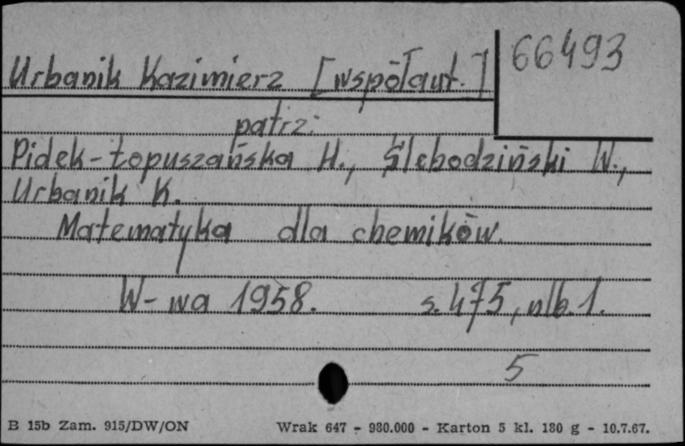 Urbanik Kazimierz [współaut.] 66493
patrz:
Pidek-Łopuszańska H., Ślebodziński W.,
Urbanik K.
Matematyka dla chemików.
W-wa 1958. s. 475, nlb. 1.
5
B 15b Zam. 915/DW/ON Wrak 647 - 980.000 - Karton 5 kl. 180 g - 10.7.67.